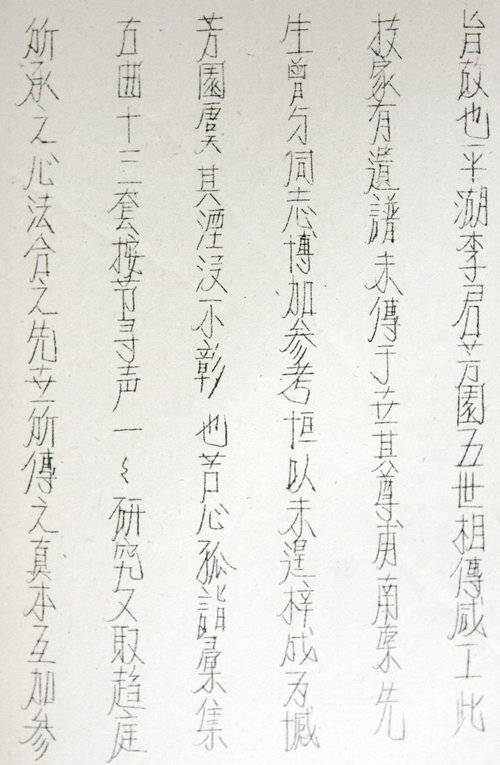 旨故也平湖李君芳園五世相傳咸工此
技家有遺譜未傳于世其尊甫南棠先
生曾与同志博加参考恒以未遑梓成为憾
芳園虞其湮没不彰也苦心孤詣彙集
古曲十三套按节寻声一々研究又取趨庭
所承之心法合之先世所傳之真本互加参